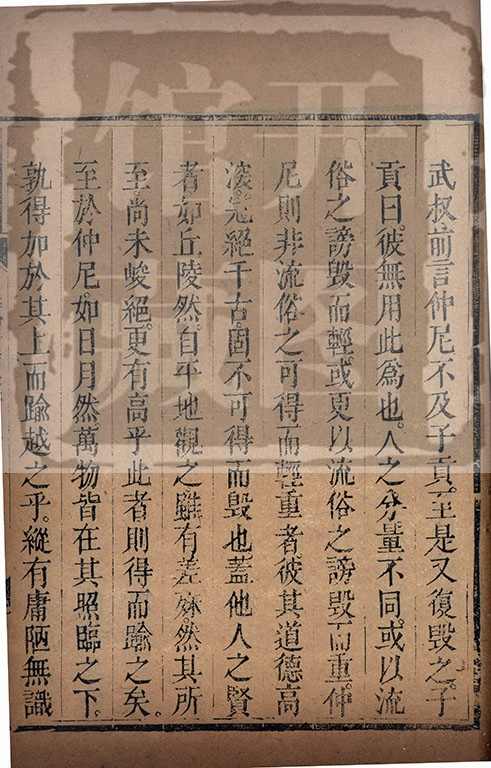 武叔前言仲尼不及子貢至是又復毀之子
貢曰彼無用此爲也人之分量不同或以流
俗之謗毀而輕或更以流俗之謗毀而重仲
尼則非流俗之可得而輕重者彼其道德高
深冠絕千古固不可得而毀也蓋他人之賢
者如丘陵然自平地觀之雖有差然其所
至尚未峻絕更有高乎此者則得而踰之矣
至於仲尼如日月然萬物皆在其照臨之下
孰得加於其上而踰越之乎縱有庸陋無識